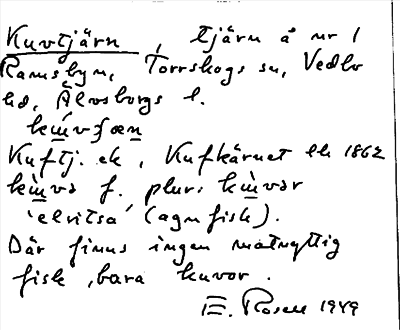 Kuvtjärn, tjärn å nr 1
Ramsbyn, Torrskogs sn, Vedbo
hd, Älvsborgs l.
Kuftj. ek, Kufkärnet 1862
f. plur.
'elritsa' (agnfisk).
Där finns ingen matnyttig
fisk, bara kuvor.
E. Rosell 1949